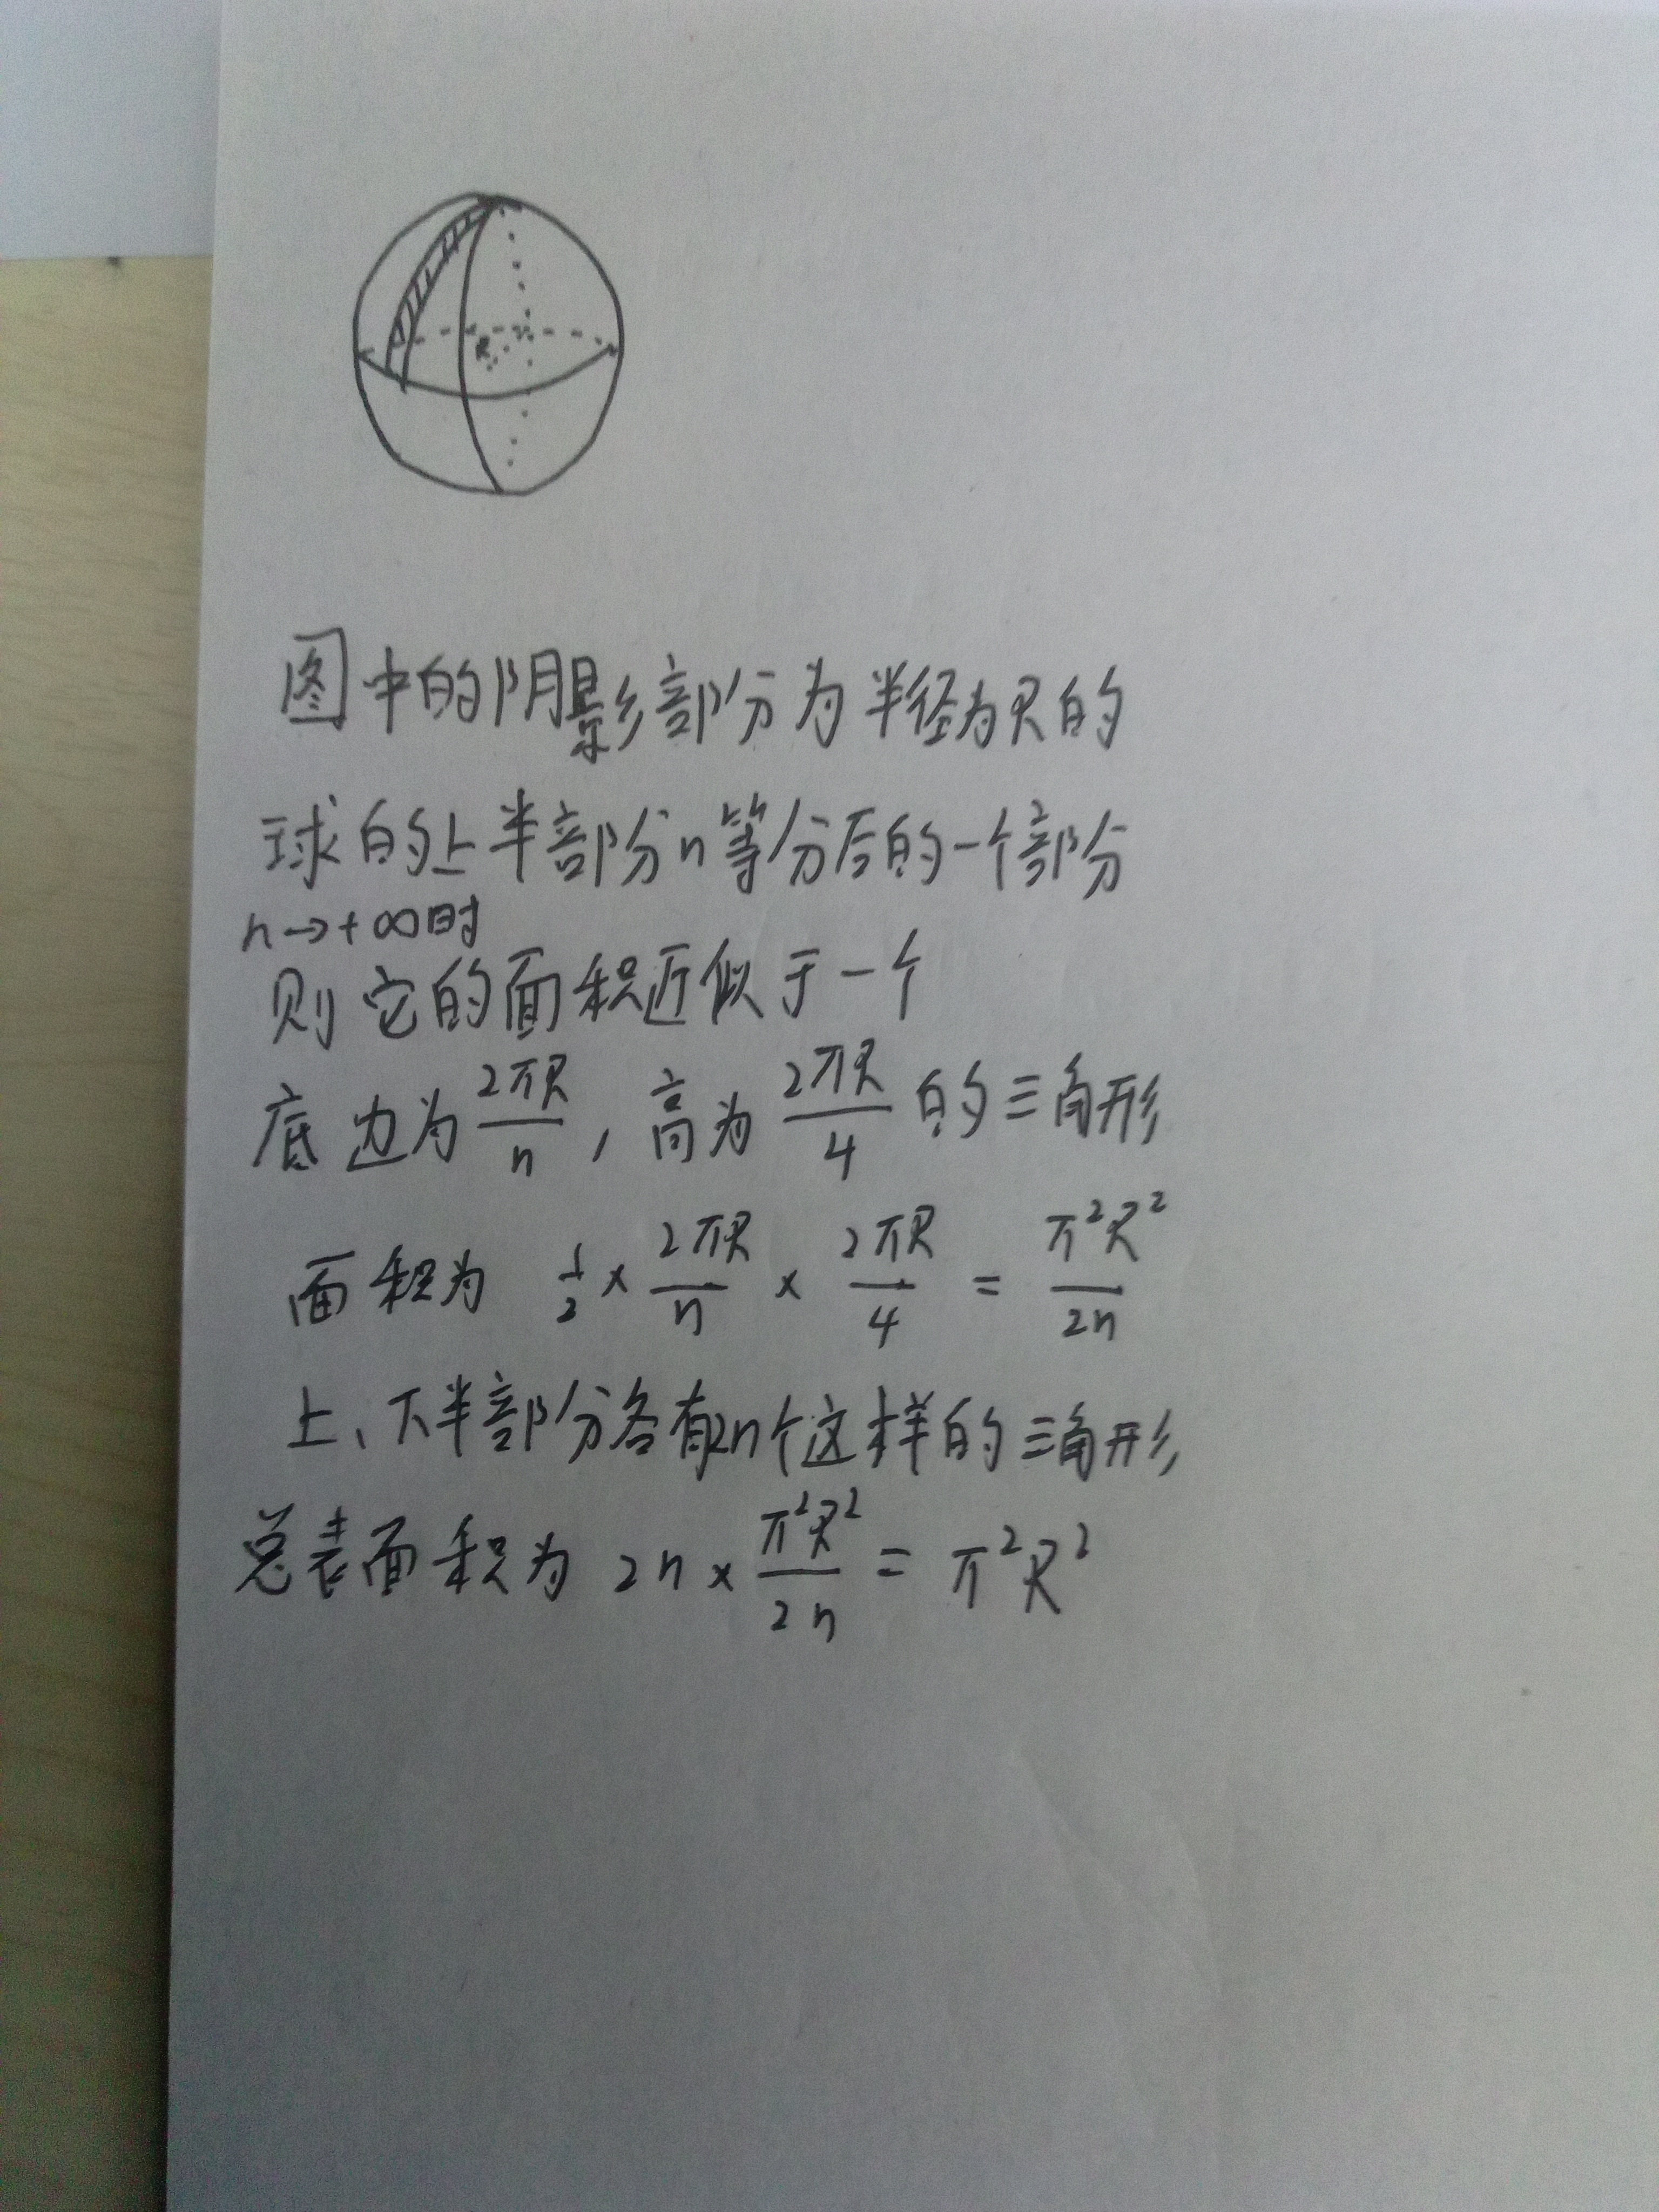 R
图中的阴影部分为半径为R的
球的上半部分n等分后的一个部分
n→+∞时
则它的面积近似于一个
底边为2πR/n,高为2πR/4的三角形
面积为 1/2×2πR/n×2πR/4=π²R²/2n
上、下半部分各有n个这样的三角形
总表面积为 2n×π²R²/2n=π²R²